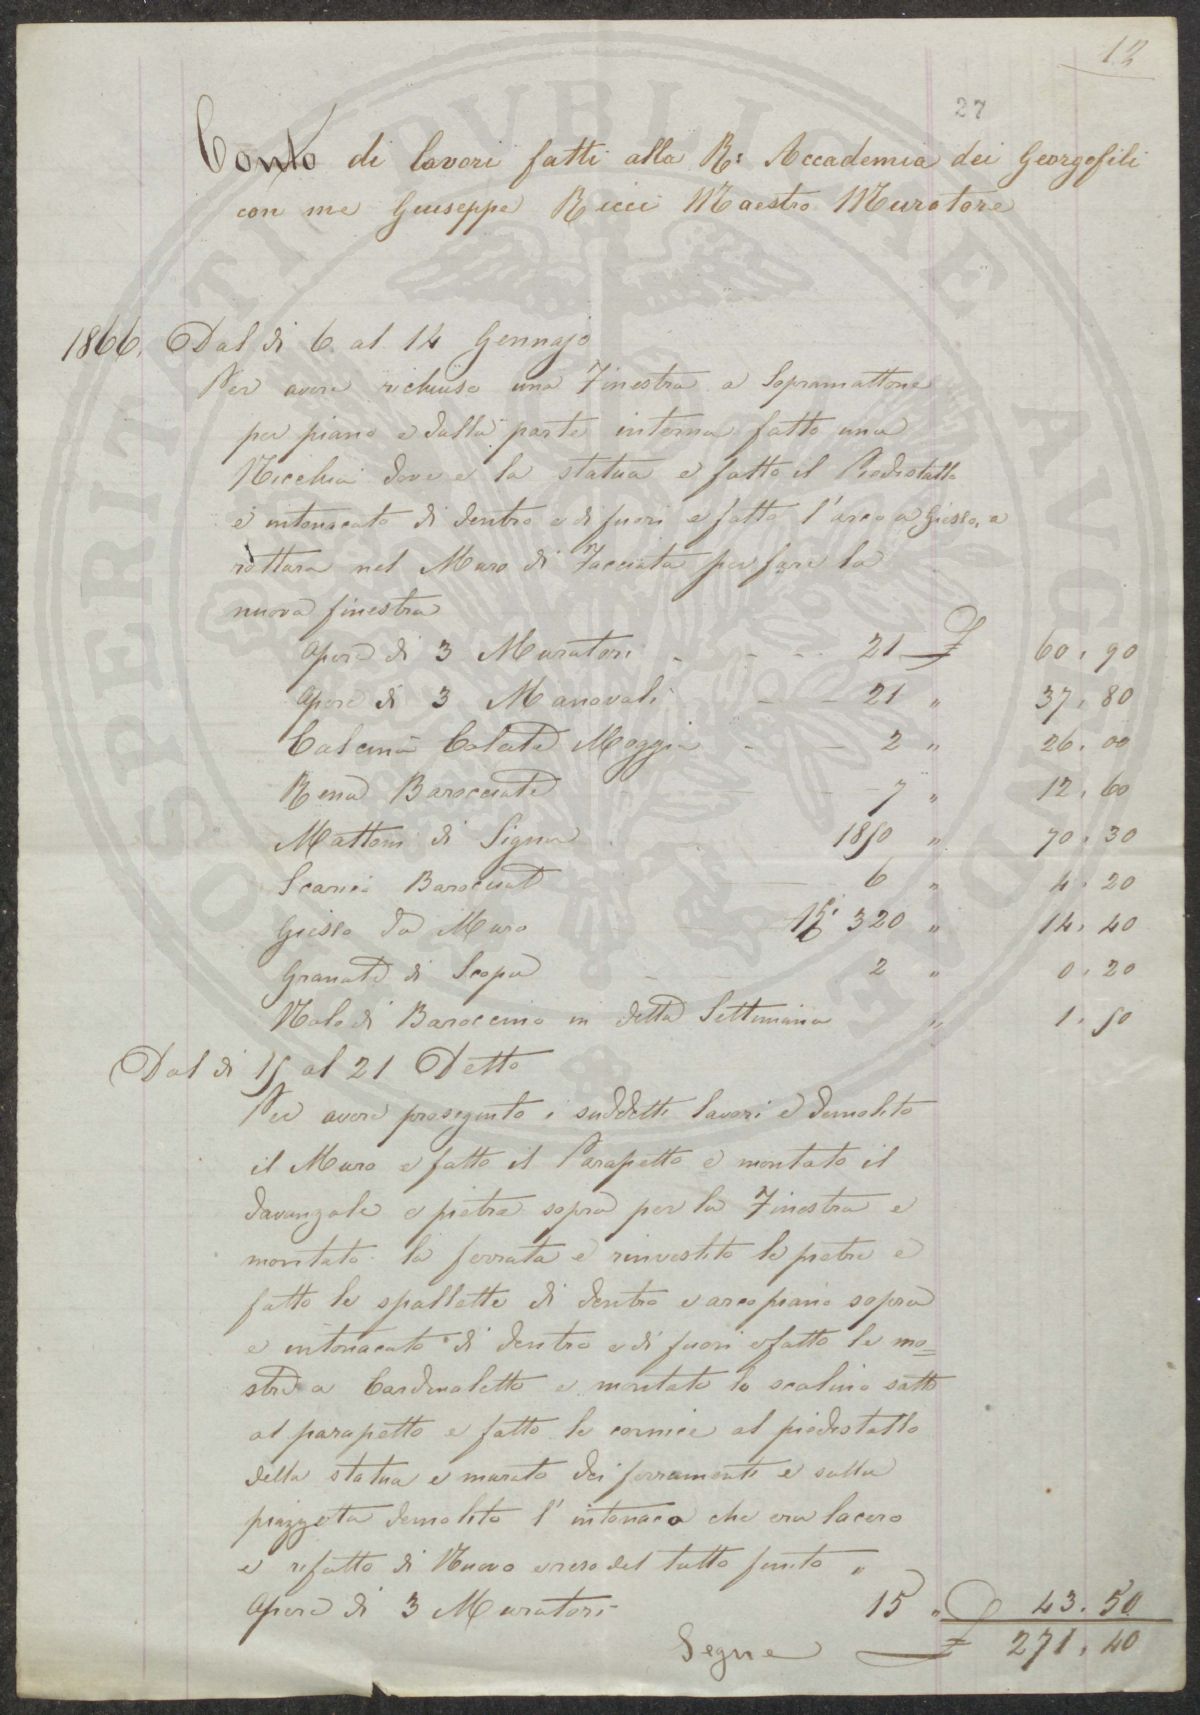 12
27
Conto di lavori fatti alla R: Accademia dei Georgofili
con me Giuseppe Ricci Maestro Muratore
1866. Dal di 6 al 14 Gennajo
Per avere richiuso una Finestra a Sopramattone
per piano e dalla parte interna fatto una
Nicchia dove e la statua e fatto il Piedistallo
e intonacato di dentro e di fuori e fatto l'arco a Giesso, e
rottura nel Muro di Facciata per fare la
nuova finestra
Opere di 3 Muratori - - - 21 £ 60. 90
Opere di 3 Manovali - - 21 " 37. 80
Calcina Colata Moggia - - 2 " 26. 00
Rena Barocciate - - 7 " 12. 60
Mattoni di Signa 1850 " 70. 30
Scarico Barocciate 6 " 4. 20
Giesso da Muro 320 " 14. 40
Granate di Scopa - 2 " 0. 20
Nolo di Baroccino in detta Settimana " 1. 50
Dal di 15 al 21 Detto
Per avere proseguito i suddetti lavori e demolito
il Muro e fatto il Parapetto e montato il
davanzale e pietra sopra per la Finestra e
montato la ferrata e rinvestito le pietre e
fatto le spallette di dentro e arco piano sopra
e intonacato di dentro e di fuori e fatto le mo=
stre a Cardinaletto e montato lo scalino sotto
al parapetto e fatto le cornice al piedistallo
della statua e murato dei ferramenti e sulla
piazzetta demolito l'intonaco che era lacero
e rifatto di Nuovo e reso del tutto finito "
Opere di 3 Muratori 15 " £ 43. 50
Segue £ 271. 40
PROSPERITATI PVBLICAE AVGENDAE